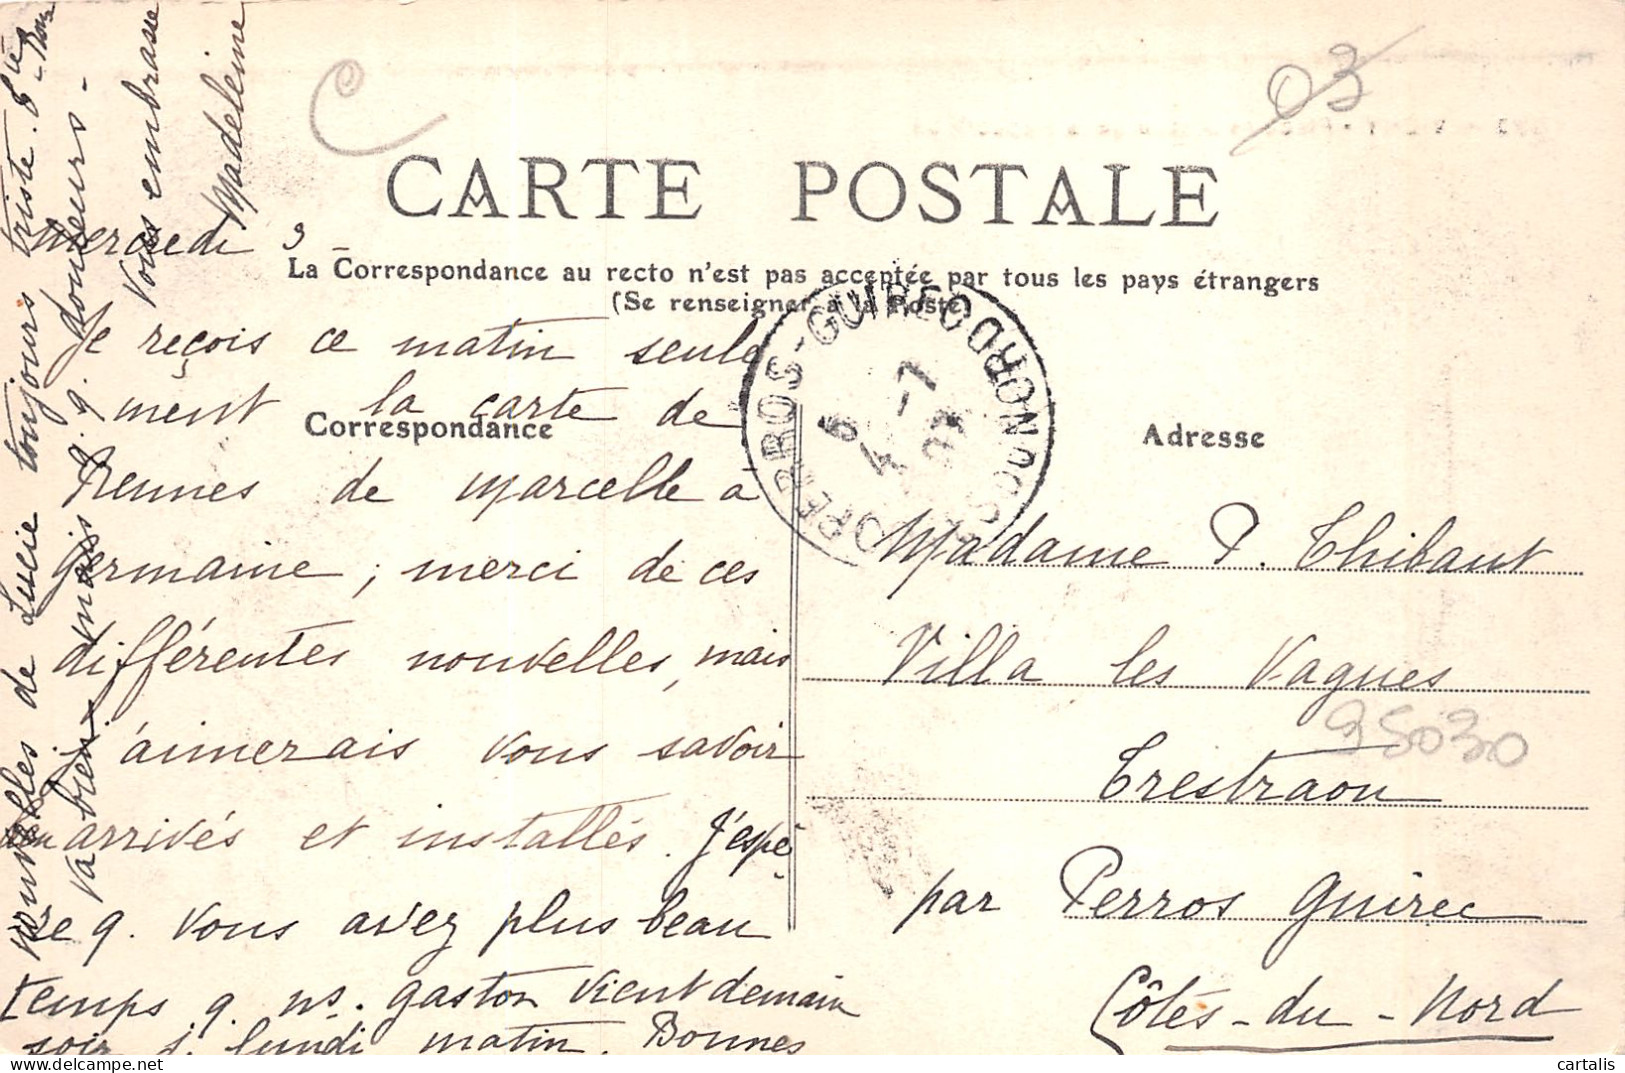 CARTE POSTALE
La Correspondance au recto n'est pas acceptée par tous les pays étrangers
(Se renseigner à la Poste)
Correspondance
Adresse
03
PERROS-GUIREC
DU NORD
4 -7
Mercredi 3 -
Je reçois ce matin seule
ment la carte de
Rennes de Marcelle à
Germaine, merci de ces
différentes nouvelles, mais
j'aimerais vous savoir
arrivés et installés. J'espè
re q. vous avez plus beau
temps q. ns. Gaston vient demain
soir j. lundi matin. Bonnes
nouvelles de Lucie toujours triste.
va bien mais q. q. douleurs -
Vous embrasse
Madeleine
Madame P. Thibaut
Villa les Vagues
Trestraou
par Perros Guirec
Côtes-du-Nord
95030
cartalis